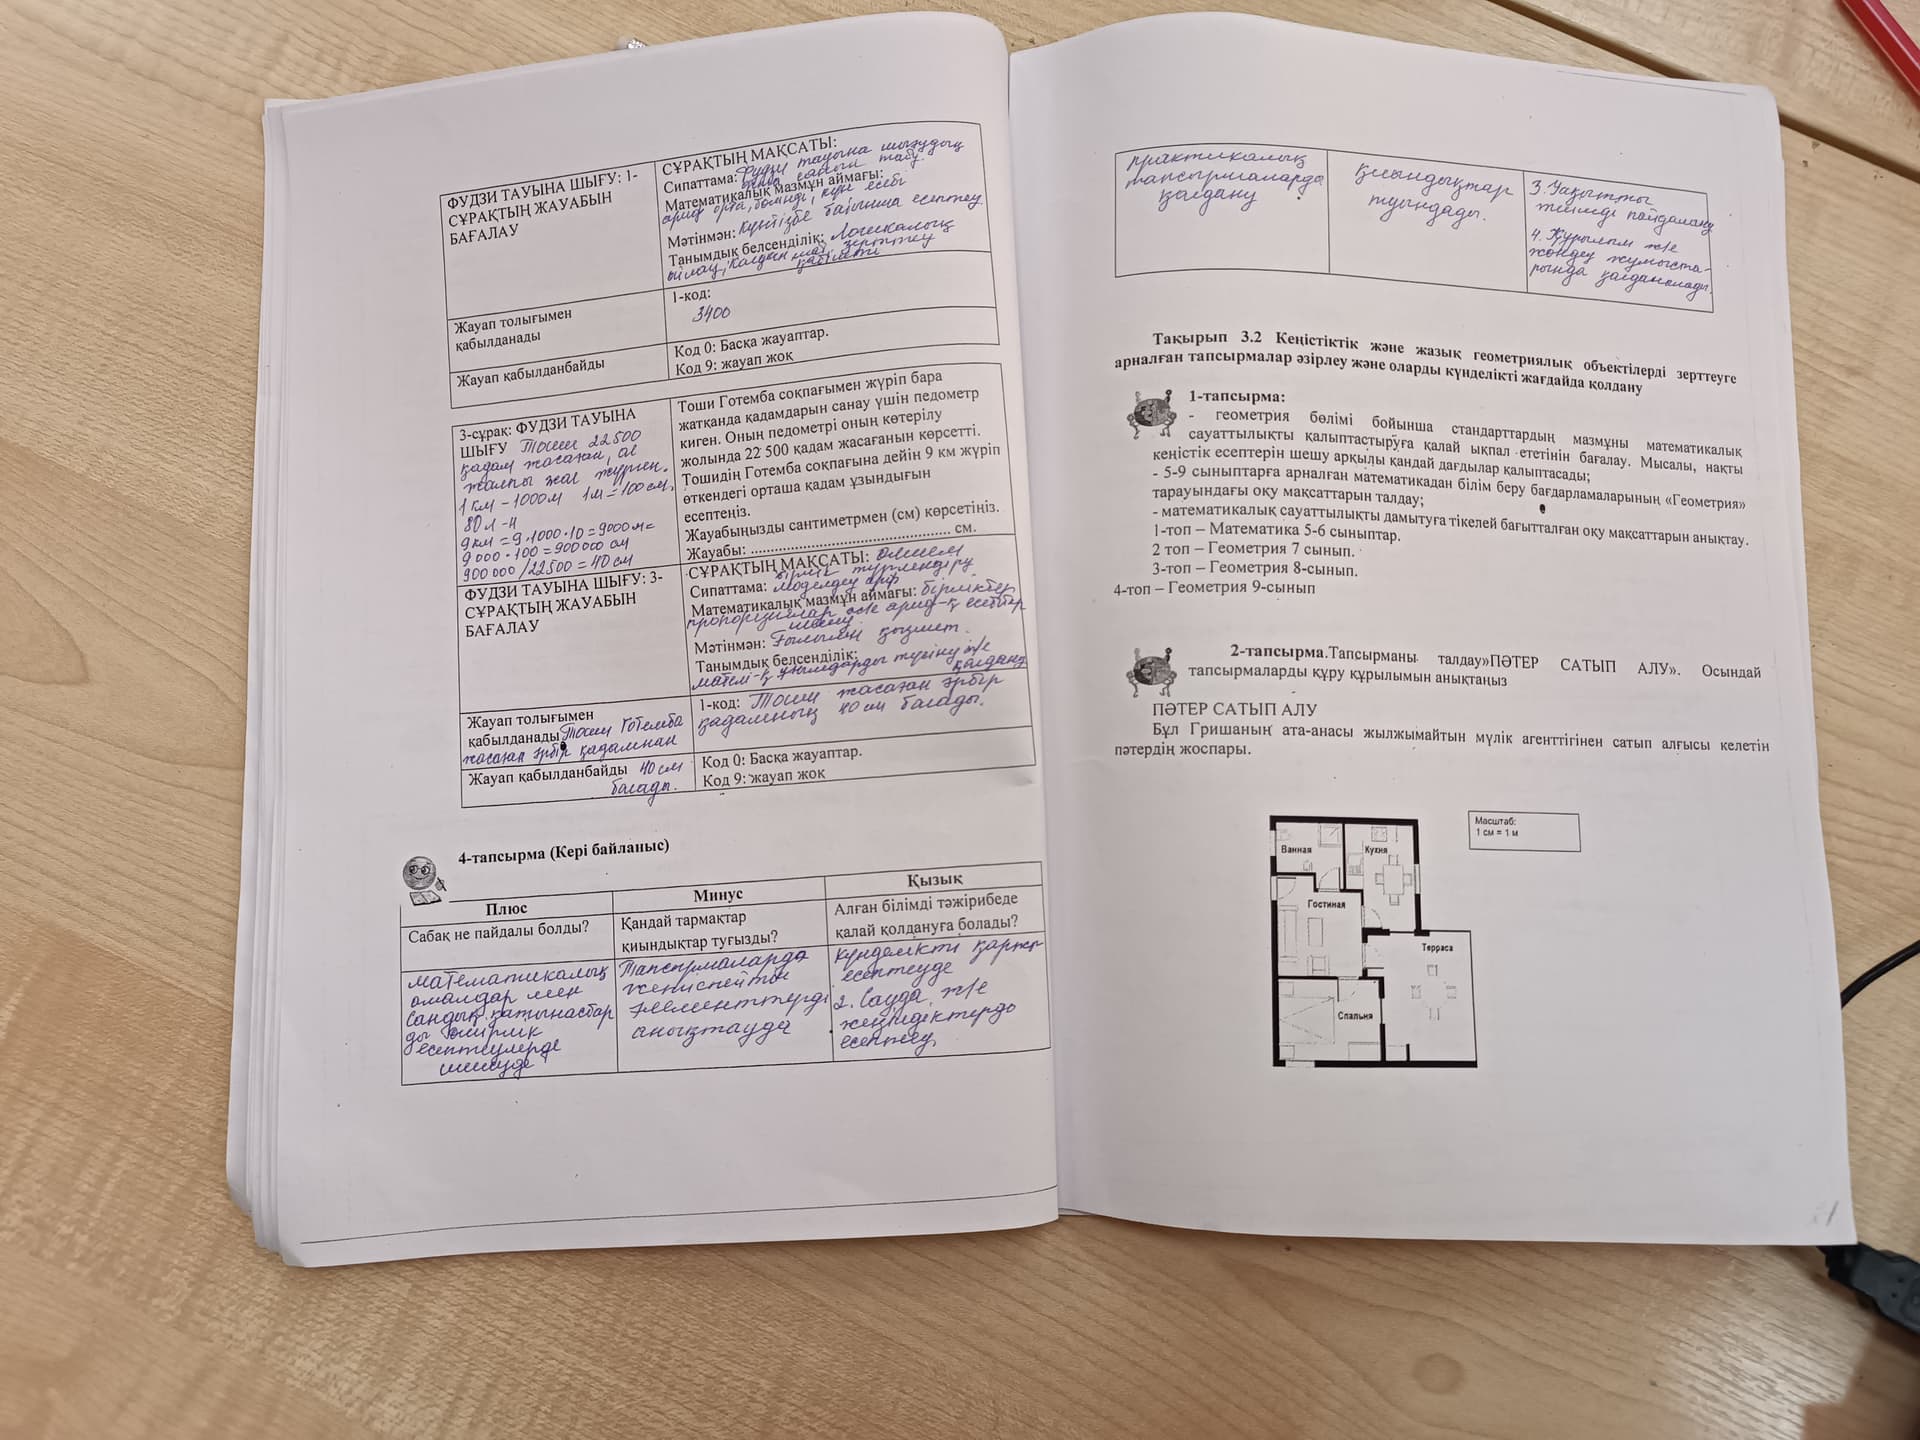 ФУДЗИ ТАУЫНА ШЫҒУ: 1-
СҰРАҚТЫҢ ЖАУАБЫН
БАҒАЛАУ
СҰРАҚТЫҢ МАҚСАТЫ:
Сипаттама: Фудзи тауына шығудың
санын табу.
Математикалық мазмұн аймағы:
орта, күн есебі
Мәтінмән: күнтізбе бойынша есептеу
Танымдық белсенділік: Логикалық
ойлау, зерттеу
қабілеті
Жауап толығымен
қабылданады
1-код:
3400
Жауап қабылданбайды
Код 0: Басқа жауаптар.
Код 9: жауап жоқ
3-сұрақ: ФУДЗИ ТАУЫНА
ШЫҒУ Тоши 22500
қадам жасаған, ал
жалпы жол жүрген.
1 км - 1000 м 1м = 100 см,
9 км = 9·1000·10 = 9000 м =
9000·100 = 900000 см
900000/22500 = 40 см
Тоши Готемба соқпағымен жүріп бара
жатқанда қадамдарын санау үшін педометр
киген. Оның педометрі оның көтерілу
жолында 22 500 қадам жасағанын көрсетті.
Тошидің Готемба соқпағына дейін 9 км жүріп
өткендегі орташа қадам ұзындығын
есептеңіз.
Жауабыңызды сантиметрмен (см) көрсетіңіз.
Жауабы: ................................................ см.
ФУДЗИ ТАУЫНА ШЫҒУ: 3-
СҰРАҚТЫҢ ЖАУАБЫН
БАҒАЛАУ
СҰРАҚТЫҢ МАҚСАТЫ: өлшем
бірлік түрлендіру
Сипаттама: моделдеу
Математикалық мазмұн аймағы: бірліктер,
пропорциялар және есептер
шешу
Мәтінмән: Ғылыми қызмет.
Танымдық белсенділік:
ұғымдарды түсіну және
қолдану
Жауап толығымен
қабылданады Тоши Готемба
жасаған әрбір қадамнан
1-код: Тоши жасаған әрбір
қадамның 40 см болады.
Жауап қабылданбайды 40 см
болады.
Код 0: Басқа жауаптар.
Код 9: жауап жоқ
4-тапсырма (Кері байланыс)
Плюс
Минус
Қызық
Сабақ не пайдалы болды?
Қандай тармақтар
қиындықтар туғызды?
Алған білімді тәжірибеде
қалай қолдануға болады?
математикалық
амалдар мен
сандық қатынастар
ды өмірлік
есептеулерде
шешуде
Тапсырмаларда
жетіспейтін
элементтерді
анықтауда
күнделікті қаржы
есептеуде
2. Сауда және
жеңілдіктерді
есептеу
практикалық
тапсырмаларда
қолдану
қиындықтар
туындады.
3. Уақытты
тиімді пайдалану
4. Құрылыс және
жөндеу жұмыста-
рында қолданылады.
Тақырып 3.2 Кеңістіктік және жазық геометриялық объектілерді зерттеуге
арналған тапсырмалар әзірлеу және оларды күнделікті жағдайда қолдану
1-тапсырма:
- геометрия бөлімі бойынша стандарттардың мазмұны математикалық
сауаттылықты қалыптастыруға қалай ықпал ететінін бағалау. Мысалы, нақты
кеңістік есептерін шешу арқылы қандай дағдылар қалыптасады;
- 5-9 сыныптарға арналған математикадан білім беру бағдарламаларының «Геометрия»
тарауындағы оқу мақсаттарын талдау;
- математикалық сауаттылықты дамытуға тікелей бағытталған оқу мақсаттарын анықтау.
1-топ – Математика 5-6 сыныптар.
2 топ – Геометрия 7 сынып.
3-топ – Геометрия 8-сынып.
4-топ – Геометрия 9-сынып
2-тапсырма.Тапсырманы талдау»ПӘТЕР САТЫП АЛУ». Осындай
тапсырмаларды құру құрылымын анықтаңыз
ПӘТЕР САТЫП АЛУ
Бұл Гришаның ата-анасы жылжымайтын мүлік агенттігінен сатып алғысы келетін
пәтердің жоспары.
Масштаб:
1 см = 1 м
Ванная
Кухня
Гостиная
Терраса
Спальня